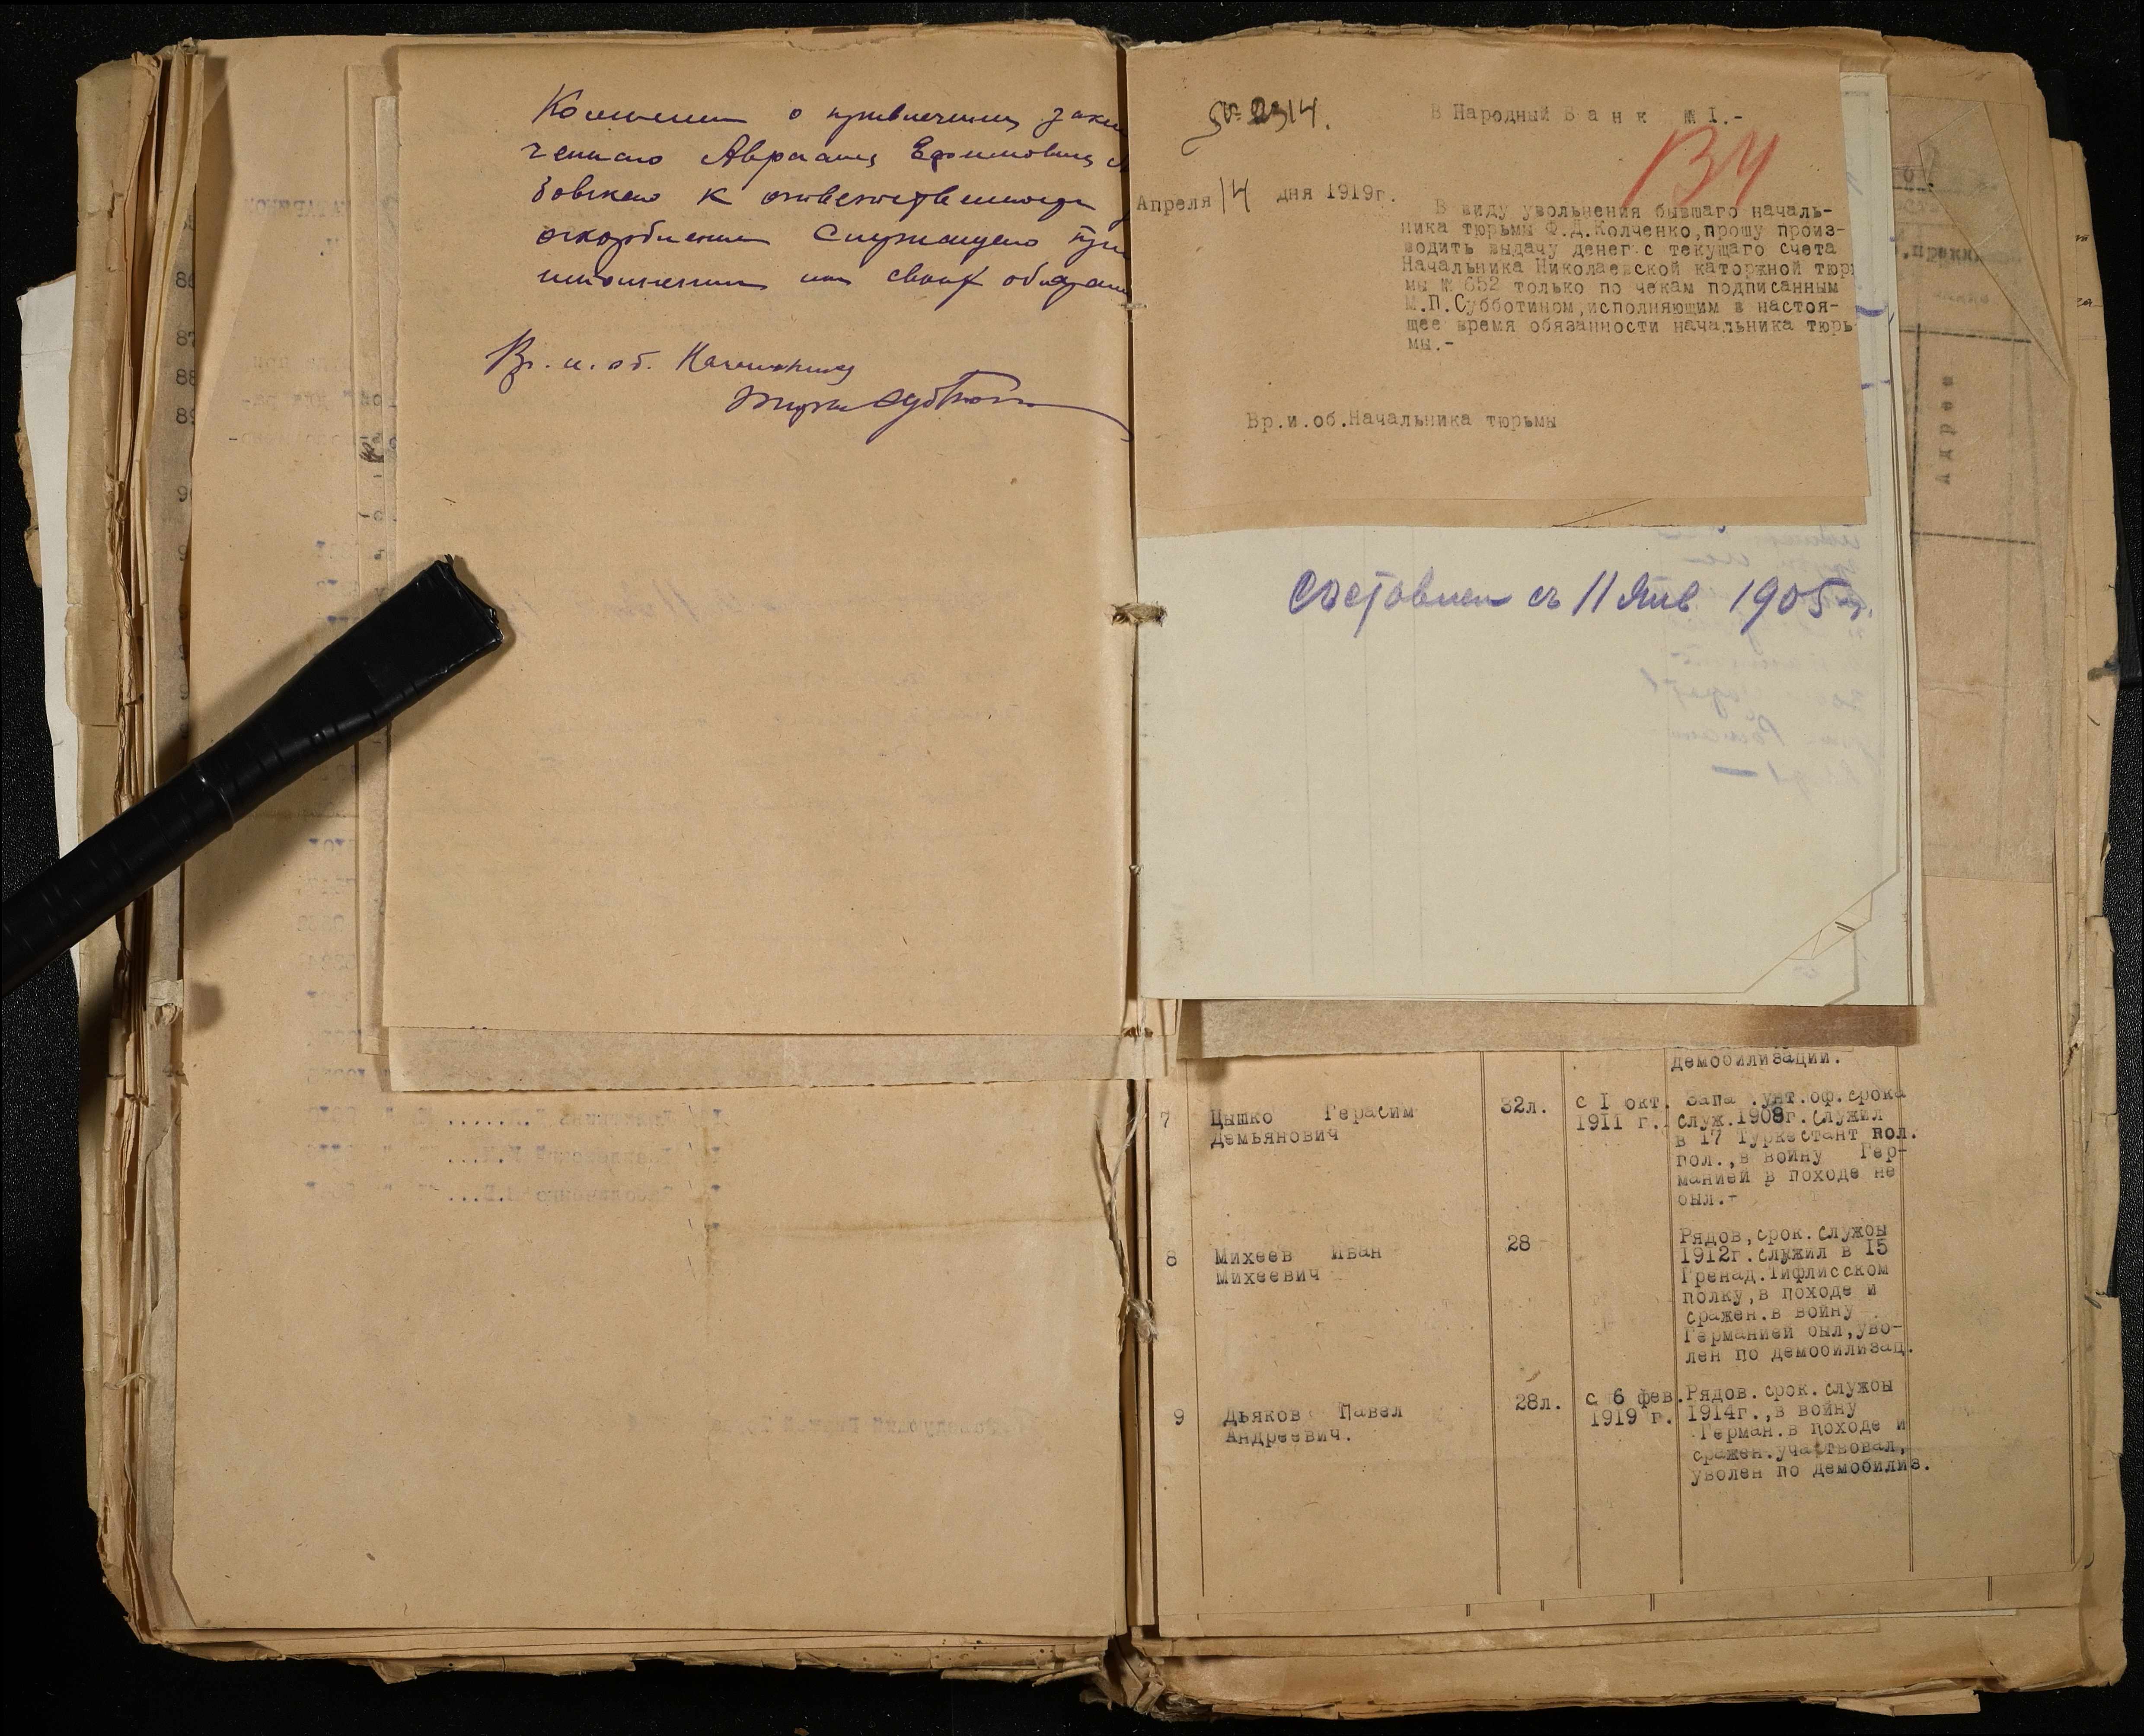 Комиссии о привлечении заклю
ченнаго Авраама Ефимовича
бовскаго к ответственности
оскорбление служащаго при
исполнении им своих обязан
Вр. и. об. Начальника
тюрьмы Субботин
№ 2314.
В Народный Банк № I.-
134
Апреля 14 дня 1919г.
В виду увольнения бывшаго началь-
ника тюрьмы Ф.Д.Колченко,прошу произ-
водить выдачу денег с текущаго счета
Начальника Николаевской каторжной тюр
мы № 652 только по чекам подписанным
М.П.Субботином,исполняющим в настоя-
щее время обязанности начальника тюрь
мы.-
Вр.и.об.Начальника тюрьмы
Съставлен съ 11 Янв 1905 г.
Адрес
демобилизации.
7 Цышко Герасим 32л. с I окт. Запа .унт.оф.срока
Демьянович 1911 г. служ.1908г.служил
в 17 Туркестант пол.
пол.,в войну Гер-
манией в походе не
был.-
8 Михеев Иван 28 Рядов,срок.службы
Михеевич 1912г.служил в 15
Гренад.Тифлисском
полку,в походе и
сражен.в войну
Германией был,уво-
лен по демобилизац.
9 Дьяков Павел 28л. с 6 фев. Рядов. срок.службы
Андреевич. 1919 г. 1914г.,в войну
Герман.в походе и
сражен.участвовал,
уволен по демобилиз.